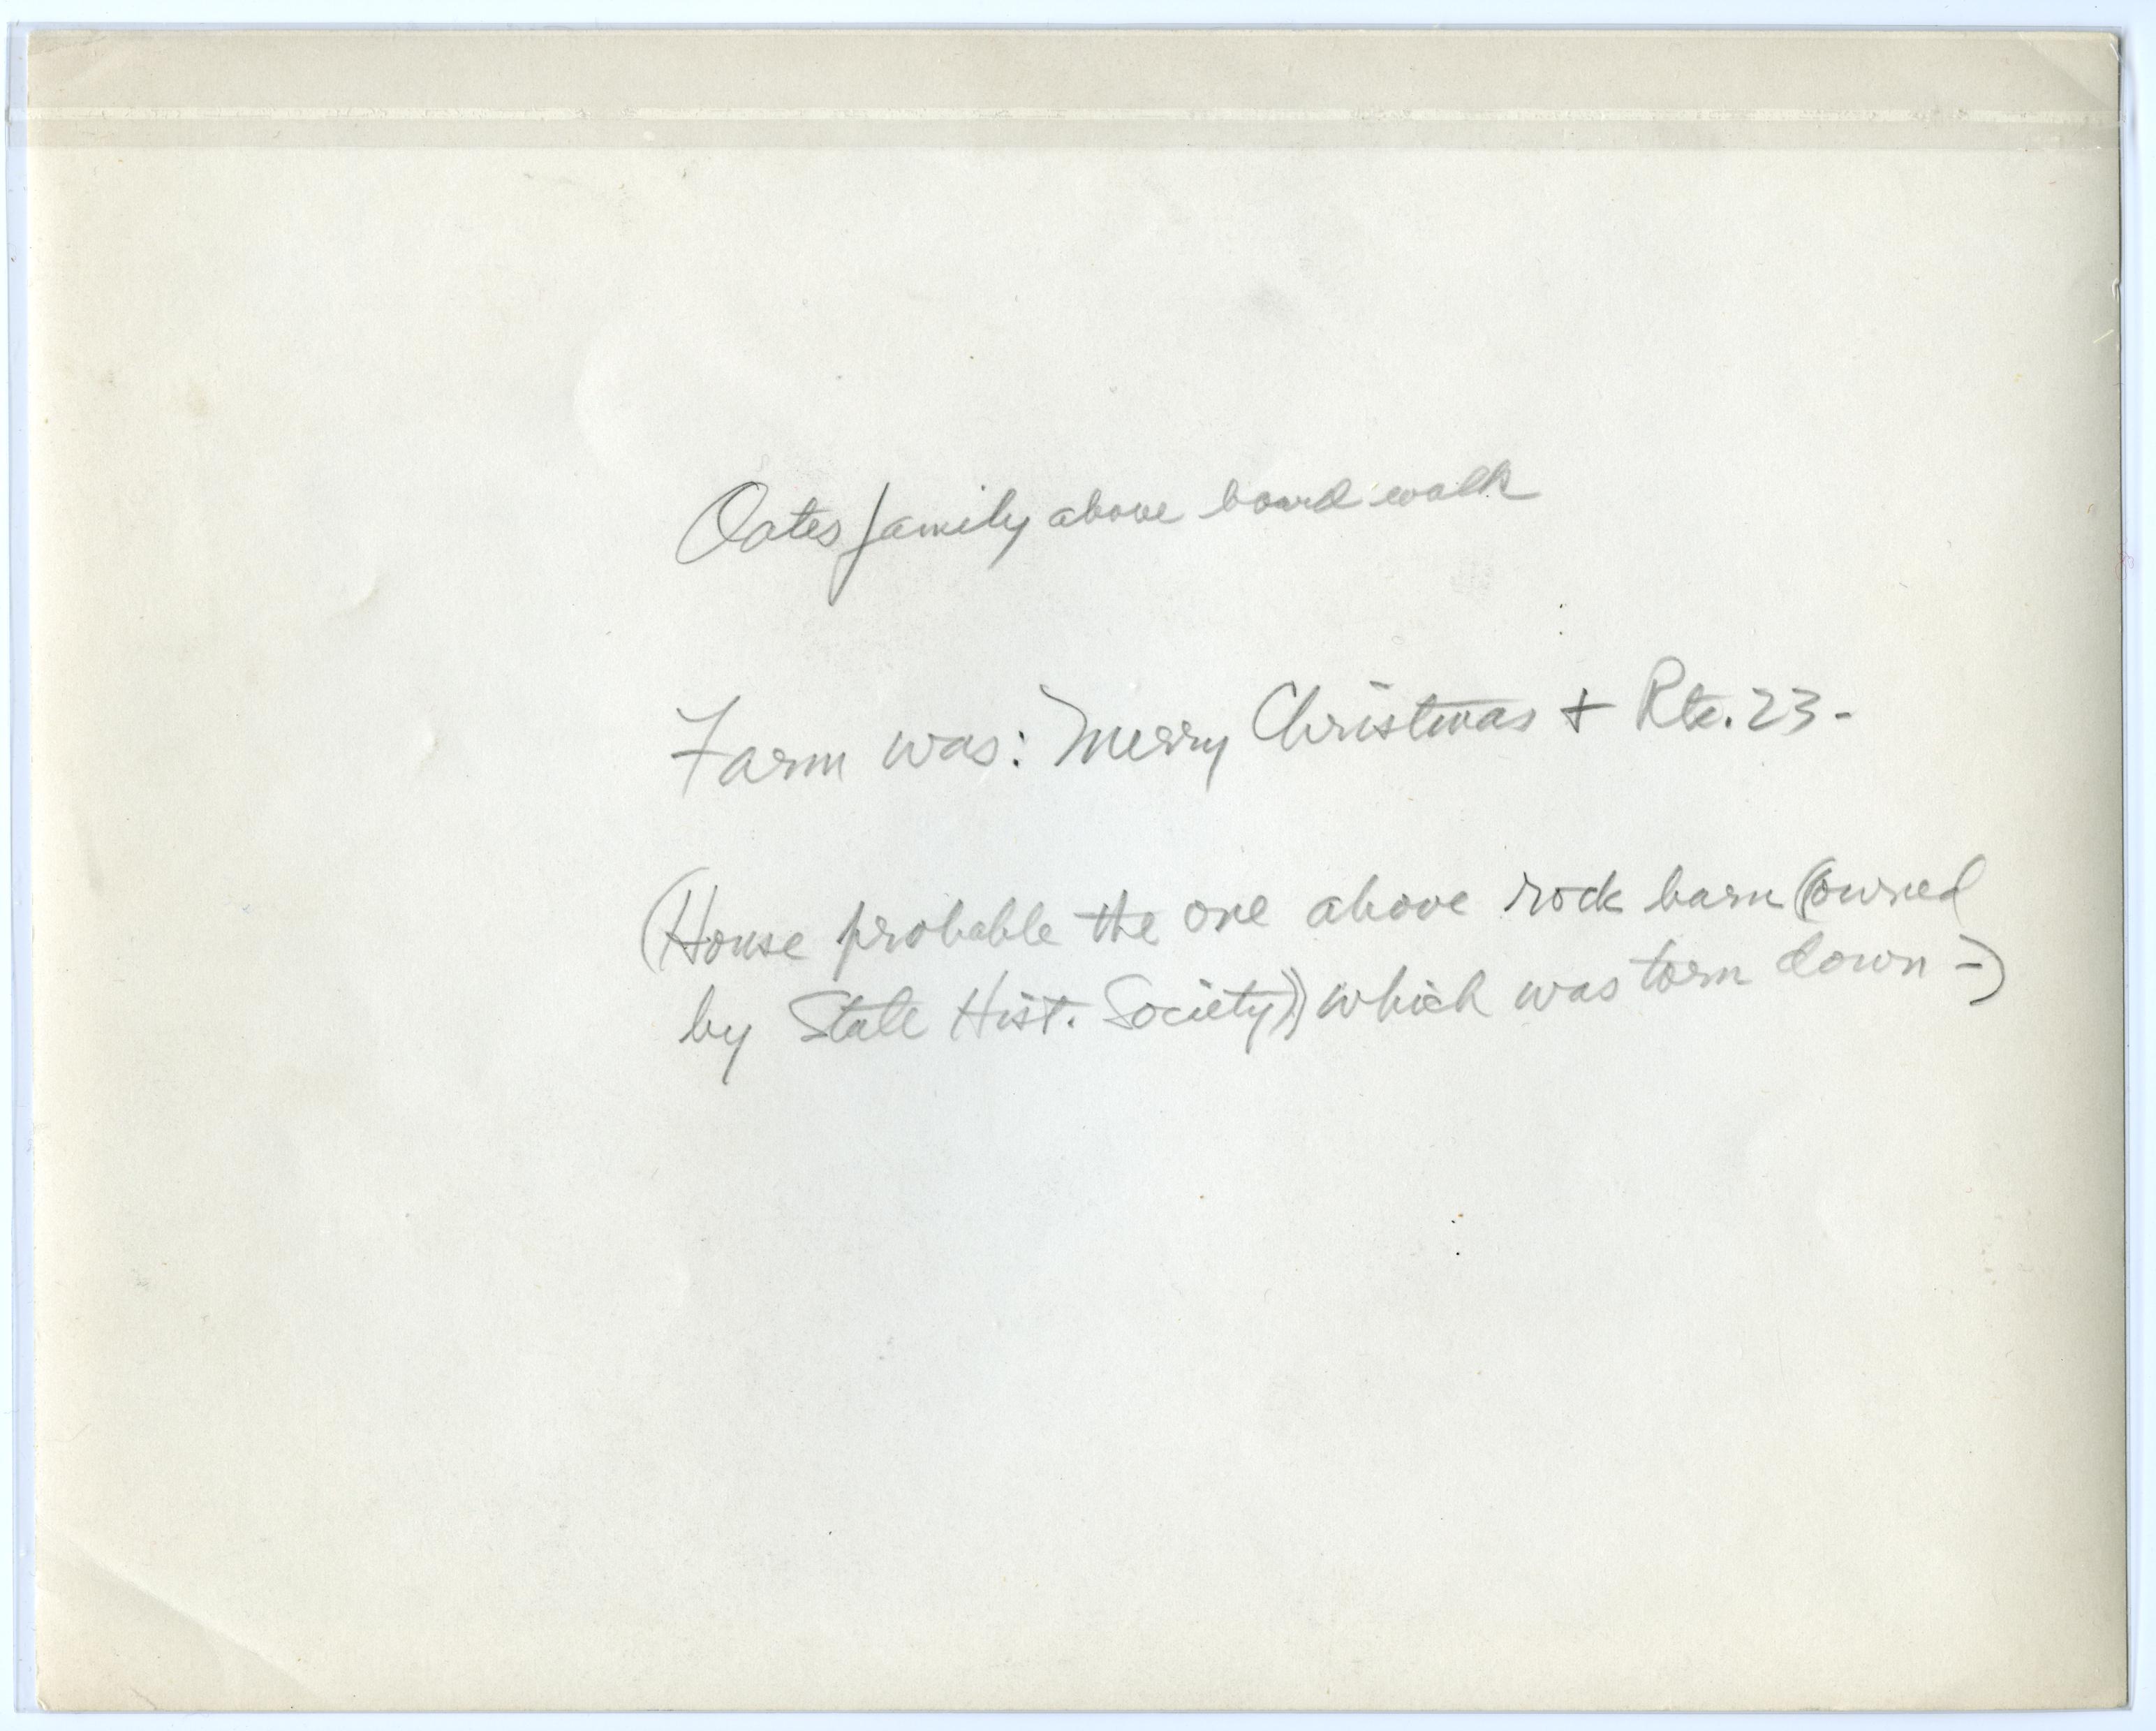 Oates family above board walk
Farm was: Merry Christmas + Rte. 23-
(House probable the one above rock barn (owned
by State Hist. Society)) which was torn down -)